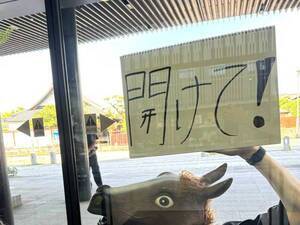 開けて!